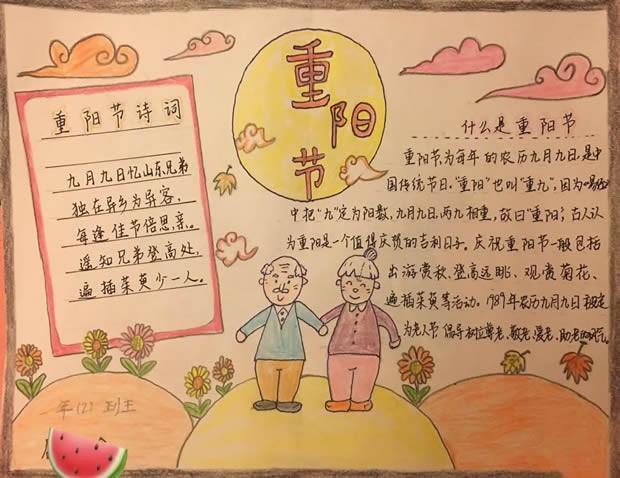 重阳节
重阳节诗词
九月九日忆山东兄弟
独在异乡为异客，
每逢佳节倍思亲。
遥知兄弟登高处，
遍插茱萸少一人。
什么是重阳节
重阳节为每年的农历九月九日，是中
国传统节日。“重阳”也叫“重九”，因为《易经》
中把“九”定为阳数，九月九日，两九相重，故曰“重阳”；古人认
为重阳是一个值得庆贺的吉利日子。庆祝重阳节一般包括
出游赏秋、登高远眺、观赏菊花、
遍插茱萸等活动。1989年农历九月九日被定
为老人节，倡导树立尊老、敬老、爱老、助老的风气。
年(2)班王